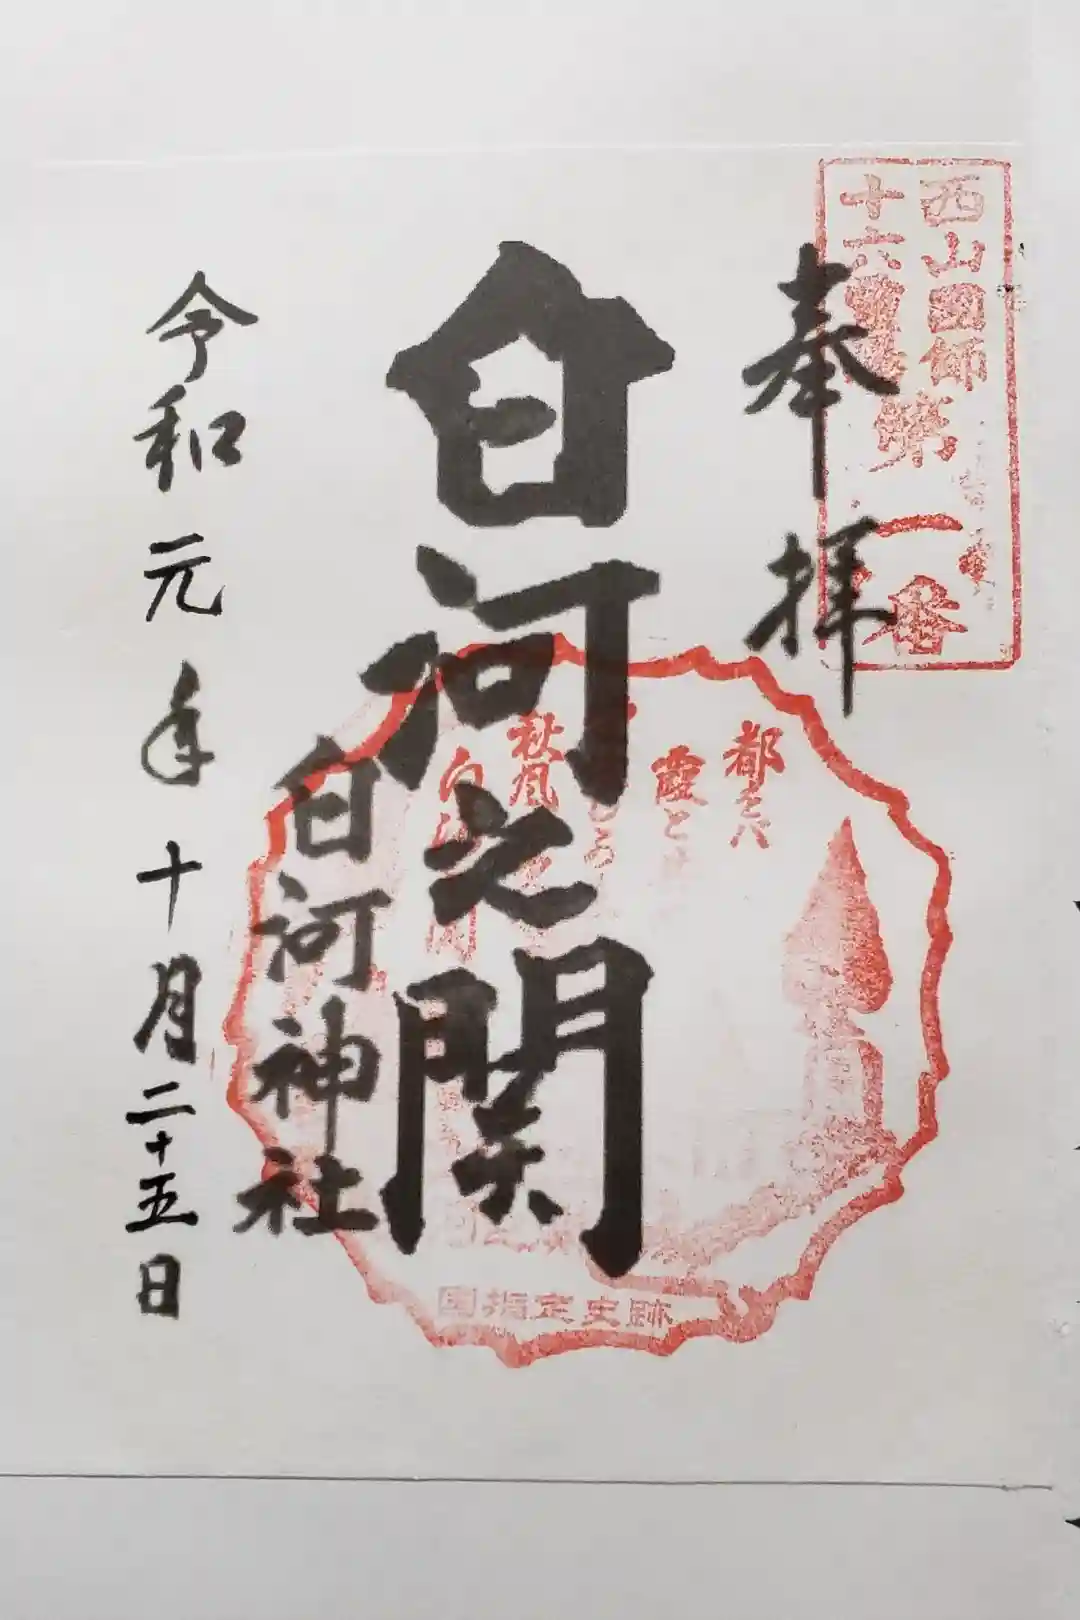 奉拝
白河之関
白河神社
令和元年十月二十五日
西山国師
十六霊
第一番
都をバ
霞と
秋風
白
関
国指定史跡